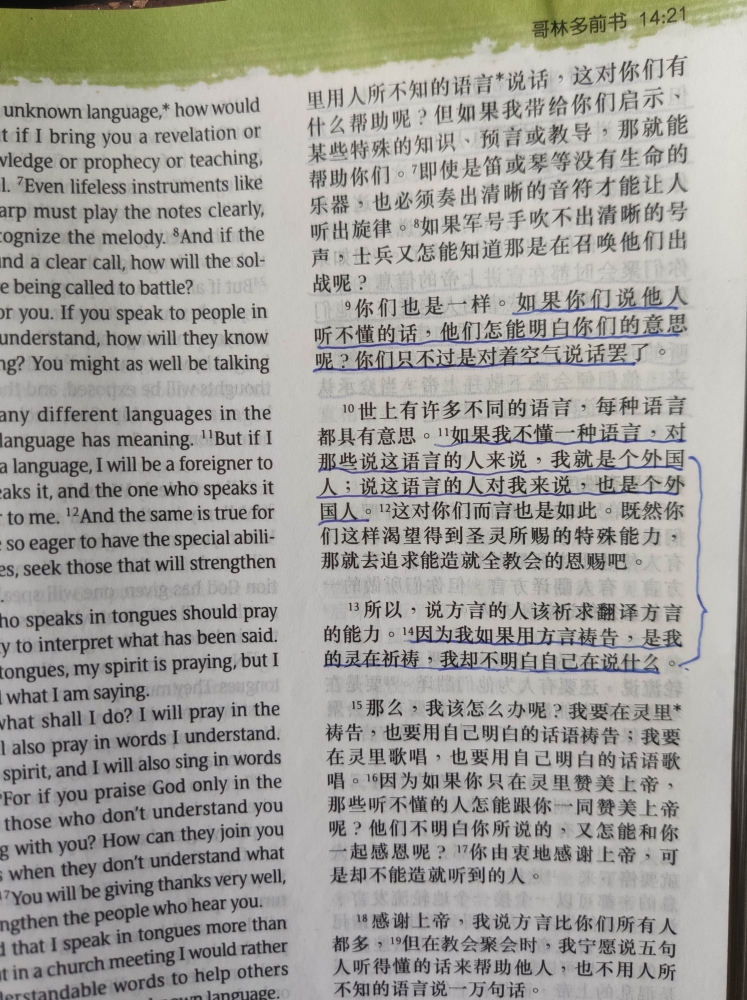 哥林多前书 14:21
unknown language,* how would
if I bring you a revelation or
or prophecy or teaching,
⁷Even lifeless instruments like
must play the notes clearly,
the melody. ⁸And if the
a clear call, how will the sol-
being called to battle?
for you. If you speak to people in
understand, how will they know
You might as well be talking
many different languages in the
language has meaning. ¹¹But if I
a language, I will be a foreigner to
it, and the one who speaks it
to me. ¹²And the same is true for
so eager to have the special abili-
seek those that will strengthen
who speaks in tongues should pray
to interpret what has been said.
tongues, my spirit is praying, but I
what I am saying.
what shall I do? I will pray in the
also pray in words I understand.
spirit, and I will also sing in words
For if you praise God only in the
those who don't understand you
with you? How can they join you
when they don't understand what
¹⁷You will be giving thanks very well,
the people who hear you.
that I speak in tongues more than
in a church meeting I would rather
words to help others
language.
里用人所不知的语言*说话，这对你们有
什么帮助呢？但如果我带给你们启示、
某些特殊的知识、预言或教导，那就能
帮助你们。⁷即使是笛或琴等没有生命的
乐器，也必须奏出清晰的音符才能让人
听出旋律。⁸如果军号手吹不出清晰的号
声，士兵又怎能知道那是在召唤他们出
战呢？
⁹你们也是一样。如果你们说他人
听不懂的话，他们怎能明白你们的意思
呢？你们只不过是对着空气说话罢了。
¹⁰世上有许多不同的语言，每种语言
都具有意思。¹¹如果我不懂一种语言，对
那些说这语言的人来说，我就是个外国
人；说这语言的人对我来说，也是个外
国人。¹²这对你们而言也是如此。既然你
们这样渴望得到圣灵所赐的特殊能力，
那就去追求能造就全教会的恩赐吧。
¹³所以，说方言的人该祈求翻译方言
的能力。¹⁴因为我如果用方言祷告，是我
的灵在祈祷，我却不明白自己在说什么。
¹⁵那么，我该怎么办呢？我要在灵里*
祷告，也要用自己明白的话语祷告；我要
在灵里歌唱，也要用自己明白的话语歌
唱。¹⁶因为如果你只在灵里赞美上帝，
那些听不懂的人怎能跟你一同赞美上帝
呢？他们不明白你所说的，又怎能和你
一起感恩呢？¹⁷你由衷地感谢上帝，可
是却不能造就听到的人。
¹⁸感谢上帝，我说方言比你们所有人
都多，¹⁹但在教会聚会时，我宁愿说五句
人听得懂的话来帮助他人，也不用人所
不知的语言说一万句话。